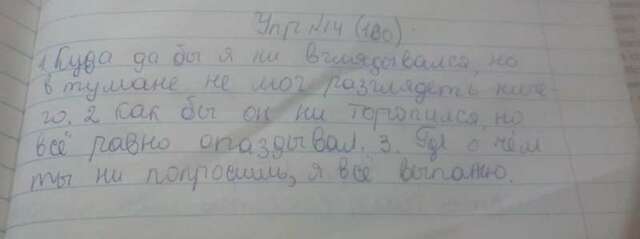 Упр №14 (180).
1. Куда да бы я ни вглядывался, но
в тумане не мог разглядеть ниче-
го. 2 Как бы он ни торопился, но
всё равно опаздывал. 3. о чём
ты ни попросишь, я всё выпажю.